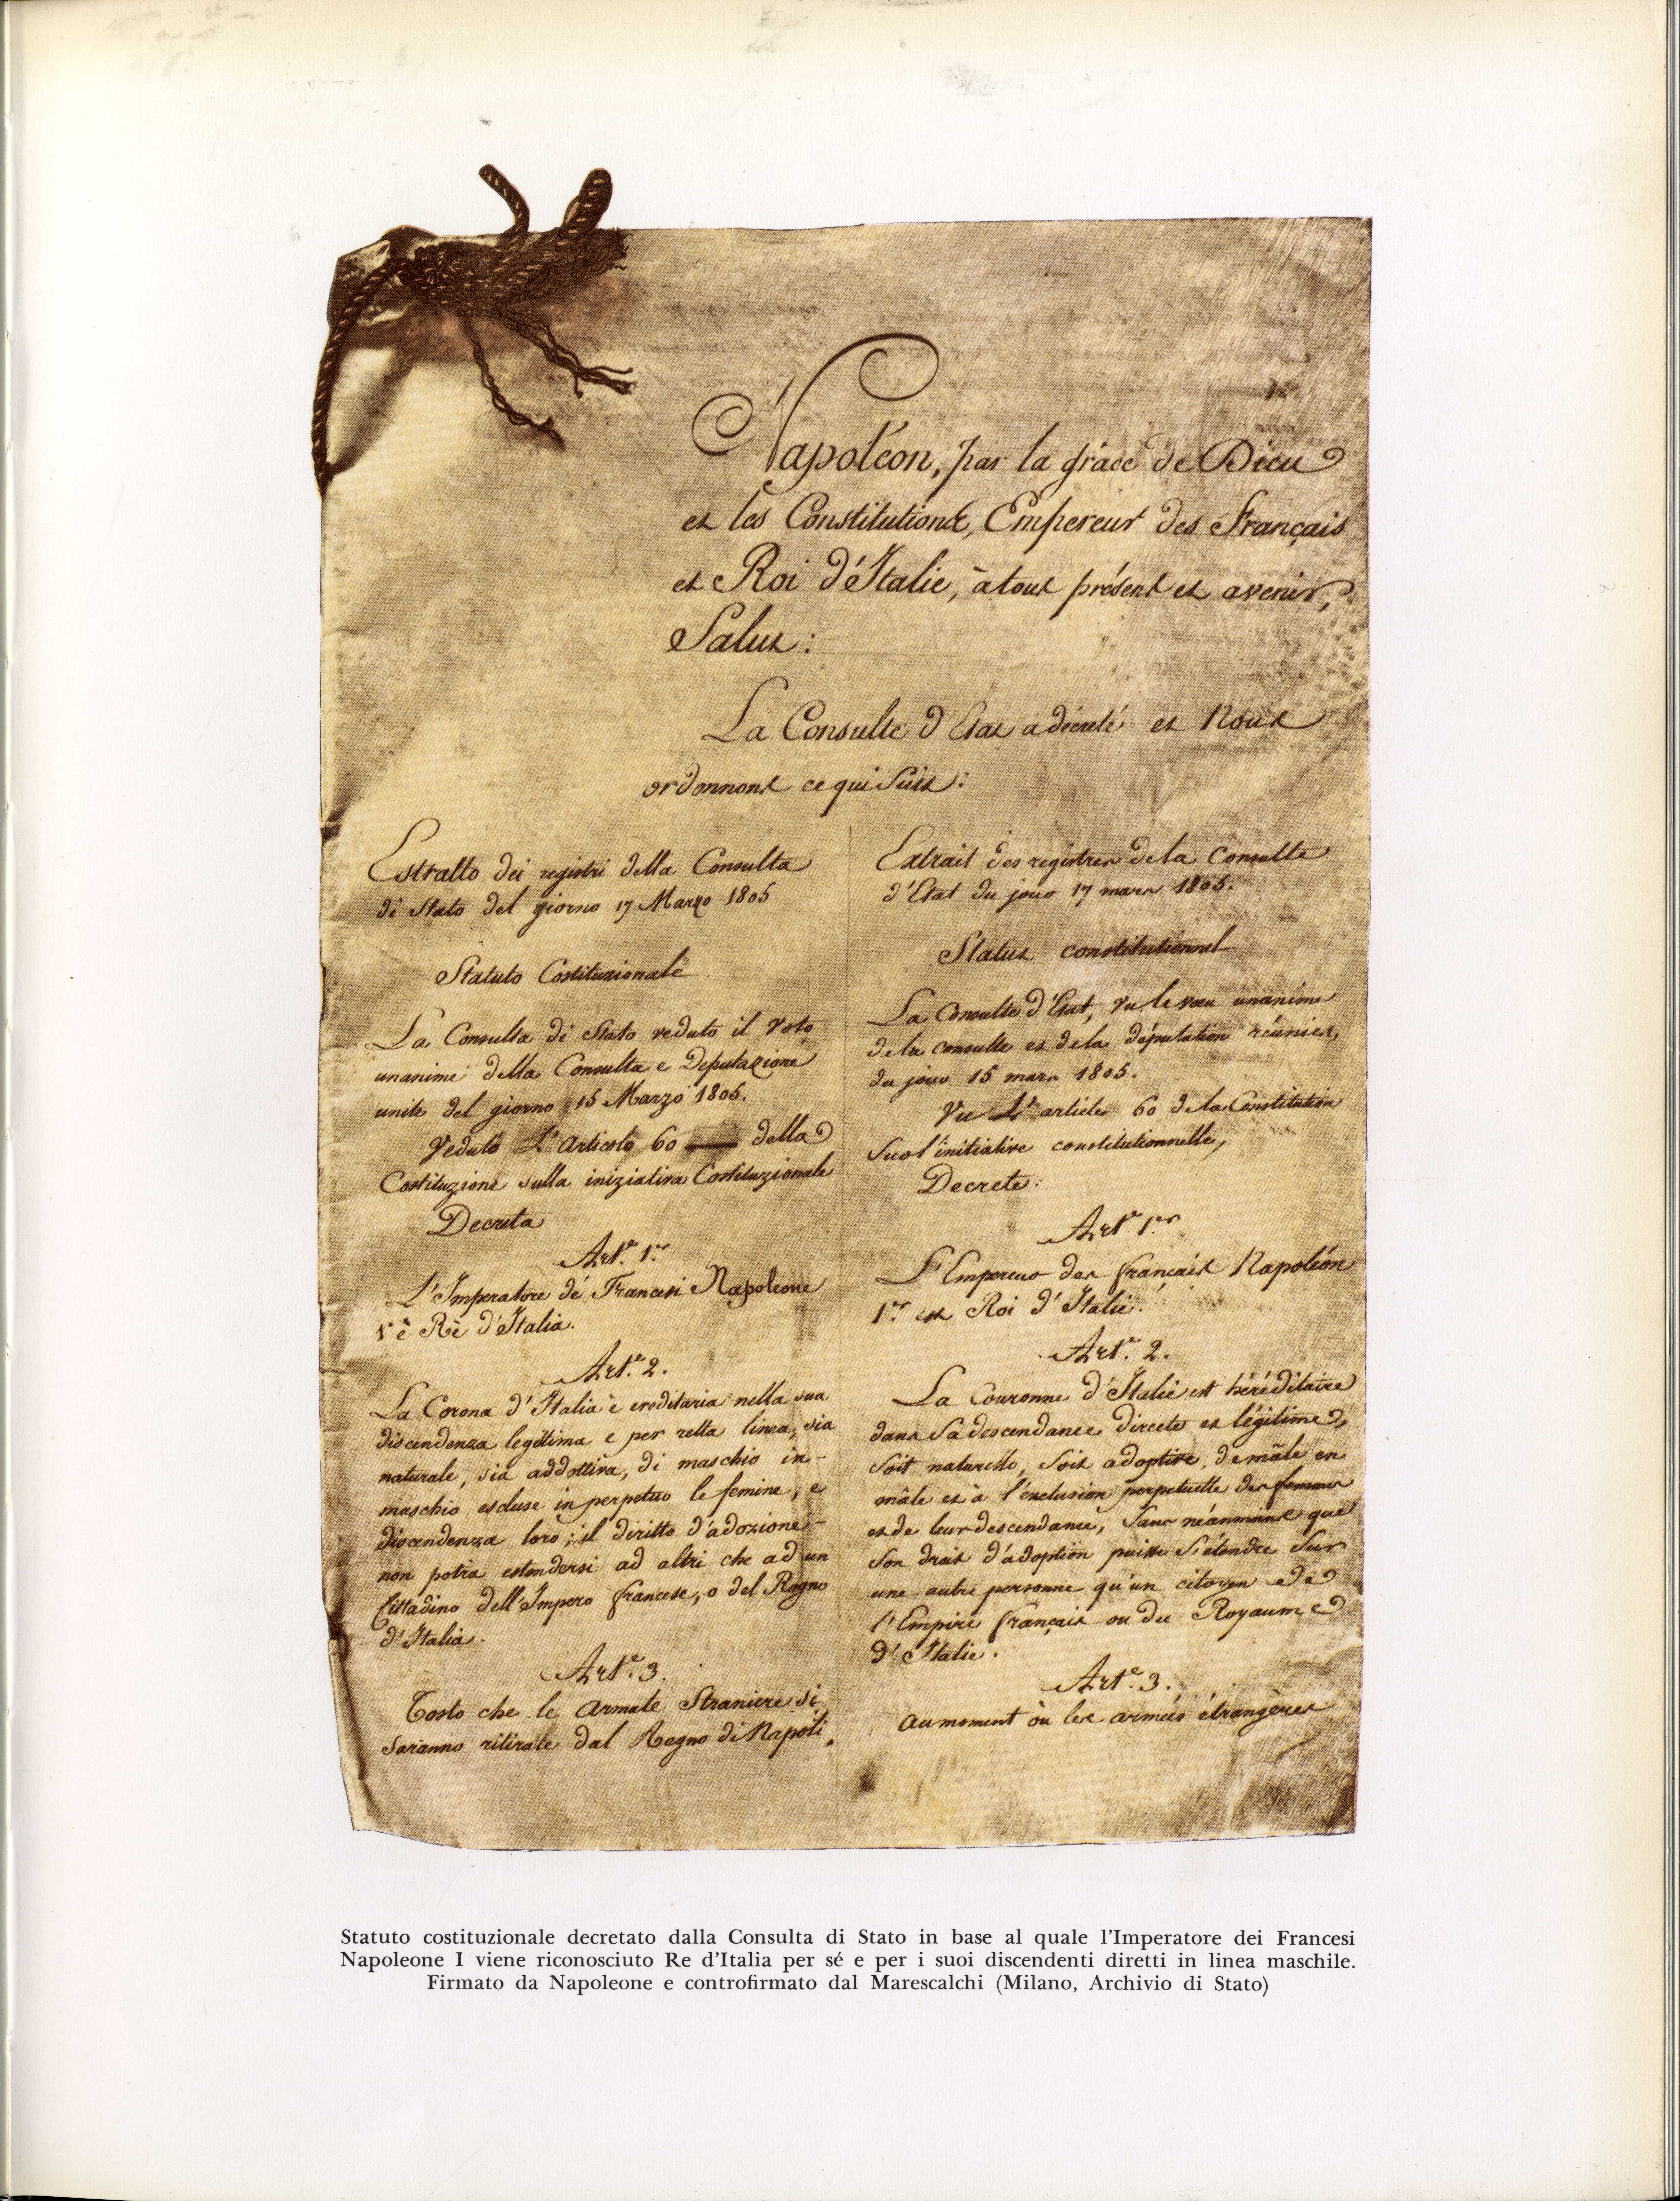 Napoléon, par la grâce de Dieu
et les Constitutions, Empereur des Français
et Roi d'Italie, à tous présent et avenir,
Salut :
La Consulte d'Etat a décreté et Nous
ordonnons ce qui Suit :
Estratto dei registri della Consulta
di Stato del giorno 17 Marzo 1805
Statuto Costituzionale
La Consulta di Stato veduto il voto
unanime della Consulta e Deputazione
unite del giorno 15 Marzo 1805.
Veduto L'Articolo 60 della
Costituzione sulla iniziativa Costituzionale
Decreta
Art.e 1.er
L'Imperatore de' Francesi Napoleone
1° è Rè d'Italia.
Art.e 2.
La Corona d'Italia è ereditaria nella sua
discendenza legittima e per retta linea, sia
naturale, sia addottiva, di maschio in-
maschio escluse in perpetuo le femine, e
discendenza loro ; il diritto d'adozione-
non potrà estendersi ad altri che ad un
Cittadino dell'Impero francese, o del Regno
d'Italia.
Art.e 3.
Tosto che le Armate Straniere si
saranno ritirate dal Regno di Napoli,
Extrait des registres de la Consulte
d'Etat du jour 17 mars 1805.
Statut constitutionnel
La Consulte d'Etat, vu le vœu unanime
de la consulte et de la députation réunies,
du jour 15 mars 1805.
Vu L'article 60 de la Constitution
Sur l'initiative constitutionnelle,
Decrete :
Art.e 1.er
L'Empereur des français Napoléon
1.er est Roi d'Italie.
Art.e 2.
La Couronne d'Italie est héréditaire
dans Sa descendance directe et légitime,
Soit naturelle, Soit adoptive, de mâle en
mâle et à l'exclusion perpetuelle des femmes
et de leur descendance, Sans néanmoins que
Son droit d'adoption puisse S'étendre Sur
une autre personne qu'un citoyen de
l'Empire français ou du Royaume
d'Italie.
Art.e 3.
au moment où les armées étrangères
Statuto costituzionale decretato dalla Consulta di Stato in base al quale l'Imperatore dei Francesi
Napoleone I viene riconosciuto Re d'Italia per sé e per i suoi discendenti diretti in linea maschile.
Firmato da Napoleone e controfirmato dal Marescalchi (Milano, Archivio di Stato)